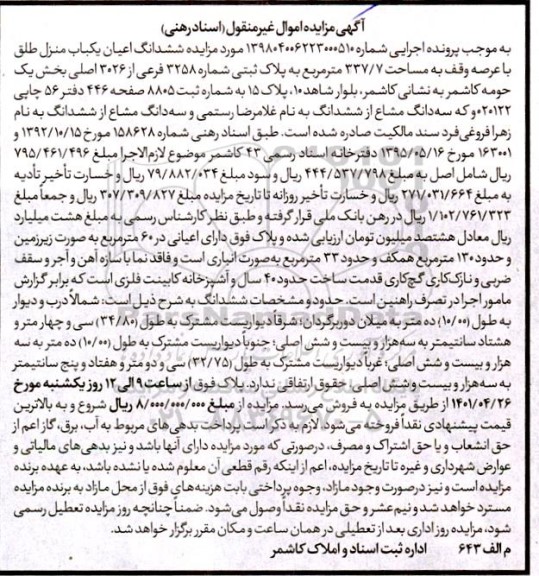 آگهی مزایده اموال غیر منقول (اسناد رهنی)
به موجب پرونده اجرایی شماره ۱۳۹۸۰۴۰۰۶۲۲۳۰۰۰۵۱۰ مورد مزایده ششدانگ اعیان یکباب منزل طلق
با عرصه وقف به مساحت ۳۳۷/۷ مترمربع به پلاک ثبتی شماره ۳۲۵۸ فرعی از ۳۰۲۶ اصلی بخش یک
حومه کاشمر به نشانی کاشمر، بلوار شاهد ۱۰، پلاک ۱۵ به شماره ثبت ۸۸۰۵ صفحه ۴۴۶ دفتر ۵۶ چاپی
۰۲۰۱۲۲ و که سه‌دانگ مشاع از ششدانگ به نام غلامرضا رستمی و سه‌دانگ مشاع از ششدانگ به نام
زهرا فروغی‌فرد سند مالکیت صادره شده است. طبق اسناد رهنی شماره ۱۵۸۶۲۸ مورخ ۱۳۹۲/۱۰/۱۵ و
۱۶۳۰۰۱ مورخ ۱۳۹۵/۰۵/۱۶ دفترخانه اسناد رسمی ۴۳ کاشمر موضوع لازم‌الاجرا مبلغ ۷۹۵/۴۶۱/۴۹۶
ریال شامل اصل به مبلغ ۴۴۴/۵۳۷/۷۹۸ ریال و سود مبلغ ۷۹/۸۸۲/۰۳۴ ریال و خسارت تأخیر تأدیه
به مبلغ ۲۷۱/۰۳۱/۶۶۴ ریال و خسارت تأخیر روزانه تا تاریخ مزایده مبلغ ۳۰۷/۳۰۹/۸۲۷ ریال و جمعاً مبلغ
۱/۱۰۲/۷۶۱/۳۲۳ ریال در رهن بانک ملی قرار گرفته و طبق نظر کارشناس رسمی به مبلغ هشت میلیارد
ریال معادل هشتصد میلیون تومان ارزیابی شده و پلاک فوق دارای اعیانی در ۶۰ مترمربع به صورت زیرزمین
و حدود ۱۳۰ مترمربع همکف و حدود ۳۳ مترمربع به‌صورت انباری است و فاقد نما با سازه آهن و آجر و سقف
ضربی و نازک‌کاری گچ‌کاری قدمت ساخت حدود ۴۰ سال و آشپزخانه کابینت فلزی است که برابر گزارش
مامور اجرا در تصرف راهنین است. حدود و مشخصات ششدانگ به شرح ذیل است: شمالاً درب و دیوار
به طول (۱۰/۰۰) ده متر به میلان دور برگردان؛ شرقاً دیواریست مشترک به طول (۳۴/۸۰) سی و چهار متر و
هشتاد سانتیمتر به سه‌هزار و بیست و شش اصلی؛ جنوباً دیواریست مشترک به طول (۱۰/۰۰) ده متر به سه
هزار و بیست و شش اصلی؛ غرباً دیواریست مشترک به طول (۳۲/۷۵) سی و دو متر و هفتاد و پنج سانتیمتر
به سه‌هزار و بیست و شش اصلی. حقوق ارتفاقی ندارد. پلاک فوق از ساعت ۹ الی ۱۲ روز یکشنبه مورخ
۱۴۰۱/۰۴/۲۶ از طریق مزایده به فروش می‌رسد. مزایده از مبلغ ۸/۰۰۰/۰۰۰/۰۰۰ ریال شروع و به بالاترین
قیمت پیشنهادی نقداً فروخته می‌شود. لازم به ذکر است پرداخت بدهی‌های مربوط به آب، برق، گاز اعم از
حق انشعاب و یا حق اشتراک و مصرف، درصورتی که مورد مزایده دارای آنها باشد و نیز بدهی‌های مالیاتی و
عوارض شهرداری و غیره تا تاریخ مزایده، اعم از اینکه رقم قطعی آن معلوم شده یا نشده باشد، به عهده برنده
مزایده است و نیز درصورت وجود مازاد، وجوه پرداختی بابت هزینه‌های فوق از محل مازاد به برنده مزایده
مسترد خواهد شد و نیم عشر و حق مزایده نقداً وصول می‌شود. ضمناً چنانچه روز مزایده تعطیل رسمی
شود، مزایده روز اداری بعد از تعطیلی در همان ساعت و مکان مقرر برگزار خواهد شد.
م الف ۶۴۳ اداره ثبت اسناد و املاک کاشمر